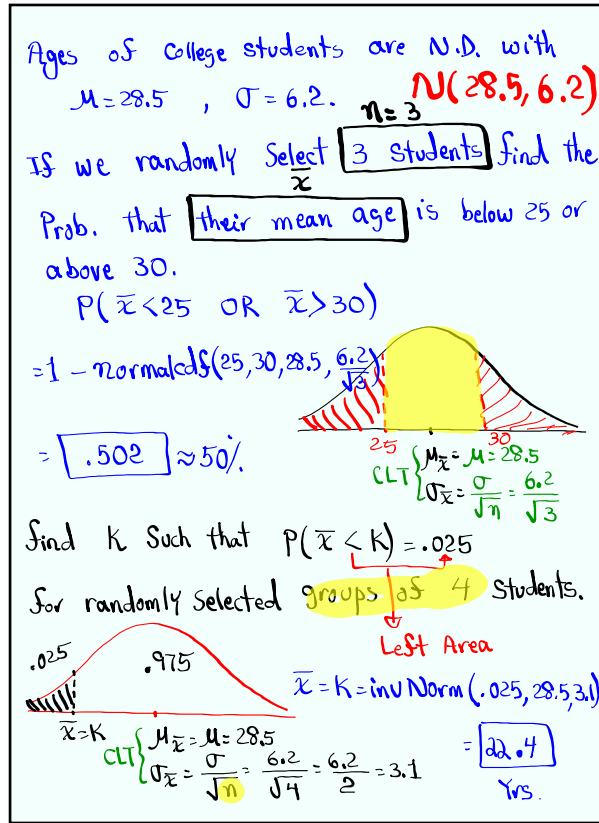 Ages of College students are N.D. with
μ=28.5 , σ=6.2. N(28.5, 6.2)
n=3
If we randomly Select 3 Students find the
x̄
Prob. that their mean age is below 25 or
above 30.
P( x̄<25 OR x̄>30)
=1 - normalcdf(25,30,28.5, 6.2/√3)
25 30
= .502 ≈50%
CLT { μx̄=μ=28.5
σx̄=σ/√n=6.2/√3
find K Such that P(x̄ < K)=.025
for randomly Selected groups of 4 Students.
Left Area
.025 .975
x̄=K=invNorm(.025,28.5,3.1)
x̄=K
CLT { μx̄=μ=28.5
σx̄=σ/√n=6.2/√4=6.2/2=3.1
= 22.4
Yrs.